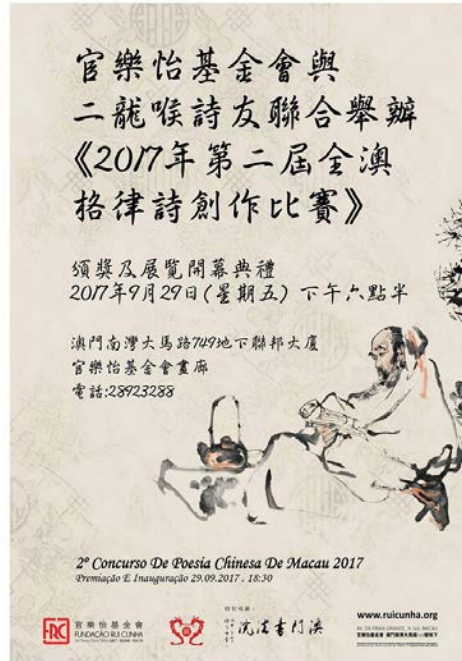 官樂怡基金會與
二龍喉詩友聯合舉辦
《2017年第二屆全澳
格律詩創作比賽》
頒獎及展覽開幕典禮
2017年9月29日(星期五) 下午六點半
澳門南灣大馬路749地下聯邦大廈
官樂怡基金會畫廊
電話:28923288
2º Concurso De Poesia Chinesa De Macau 2017
Premiação E Inauguração 29.09.2017 . 18:30
FRC
官樂怡基金會
FUNDAÇÃO RUI CUNHA
www.ruicunha.org